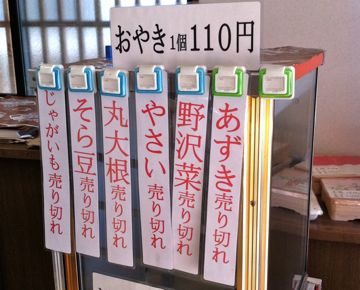 おやき1個110円
あずき売り切れ
野沢菜売り切れ
やさい売り切れ
丸大根売り切れ
そら豆売り切れ
じゃがいも売り切れ